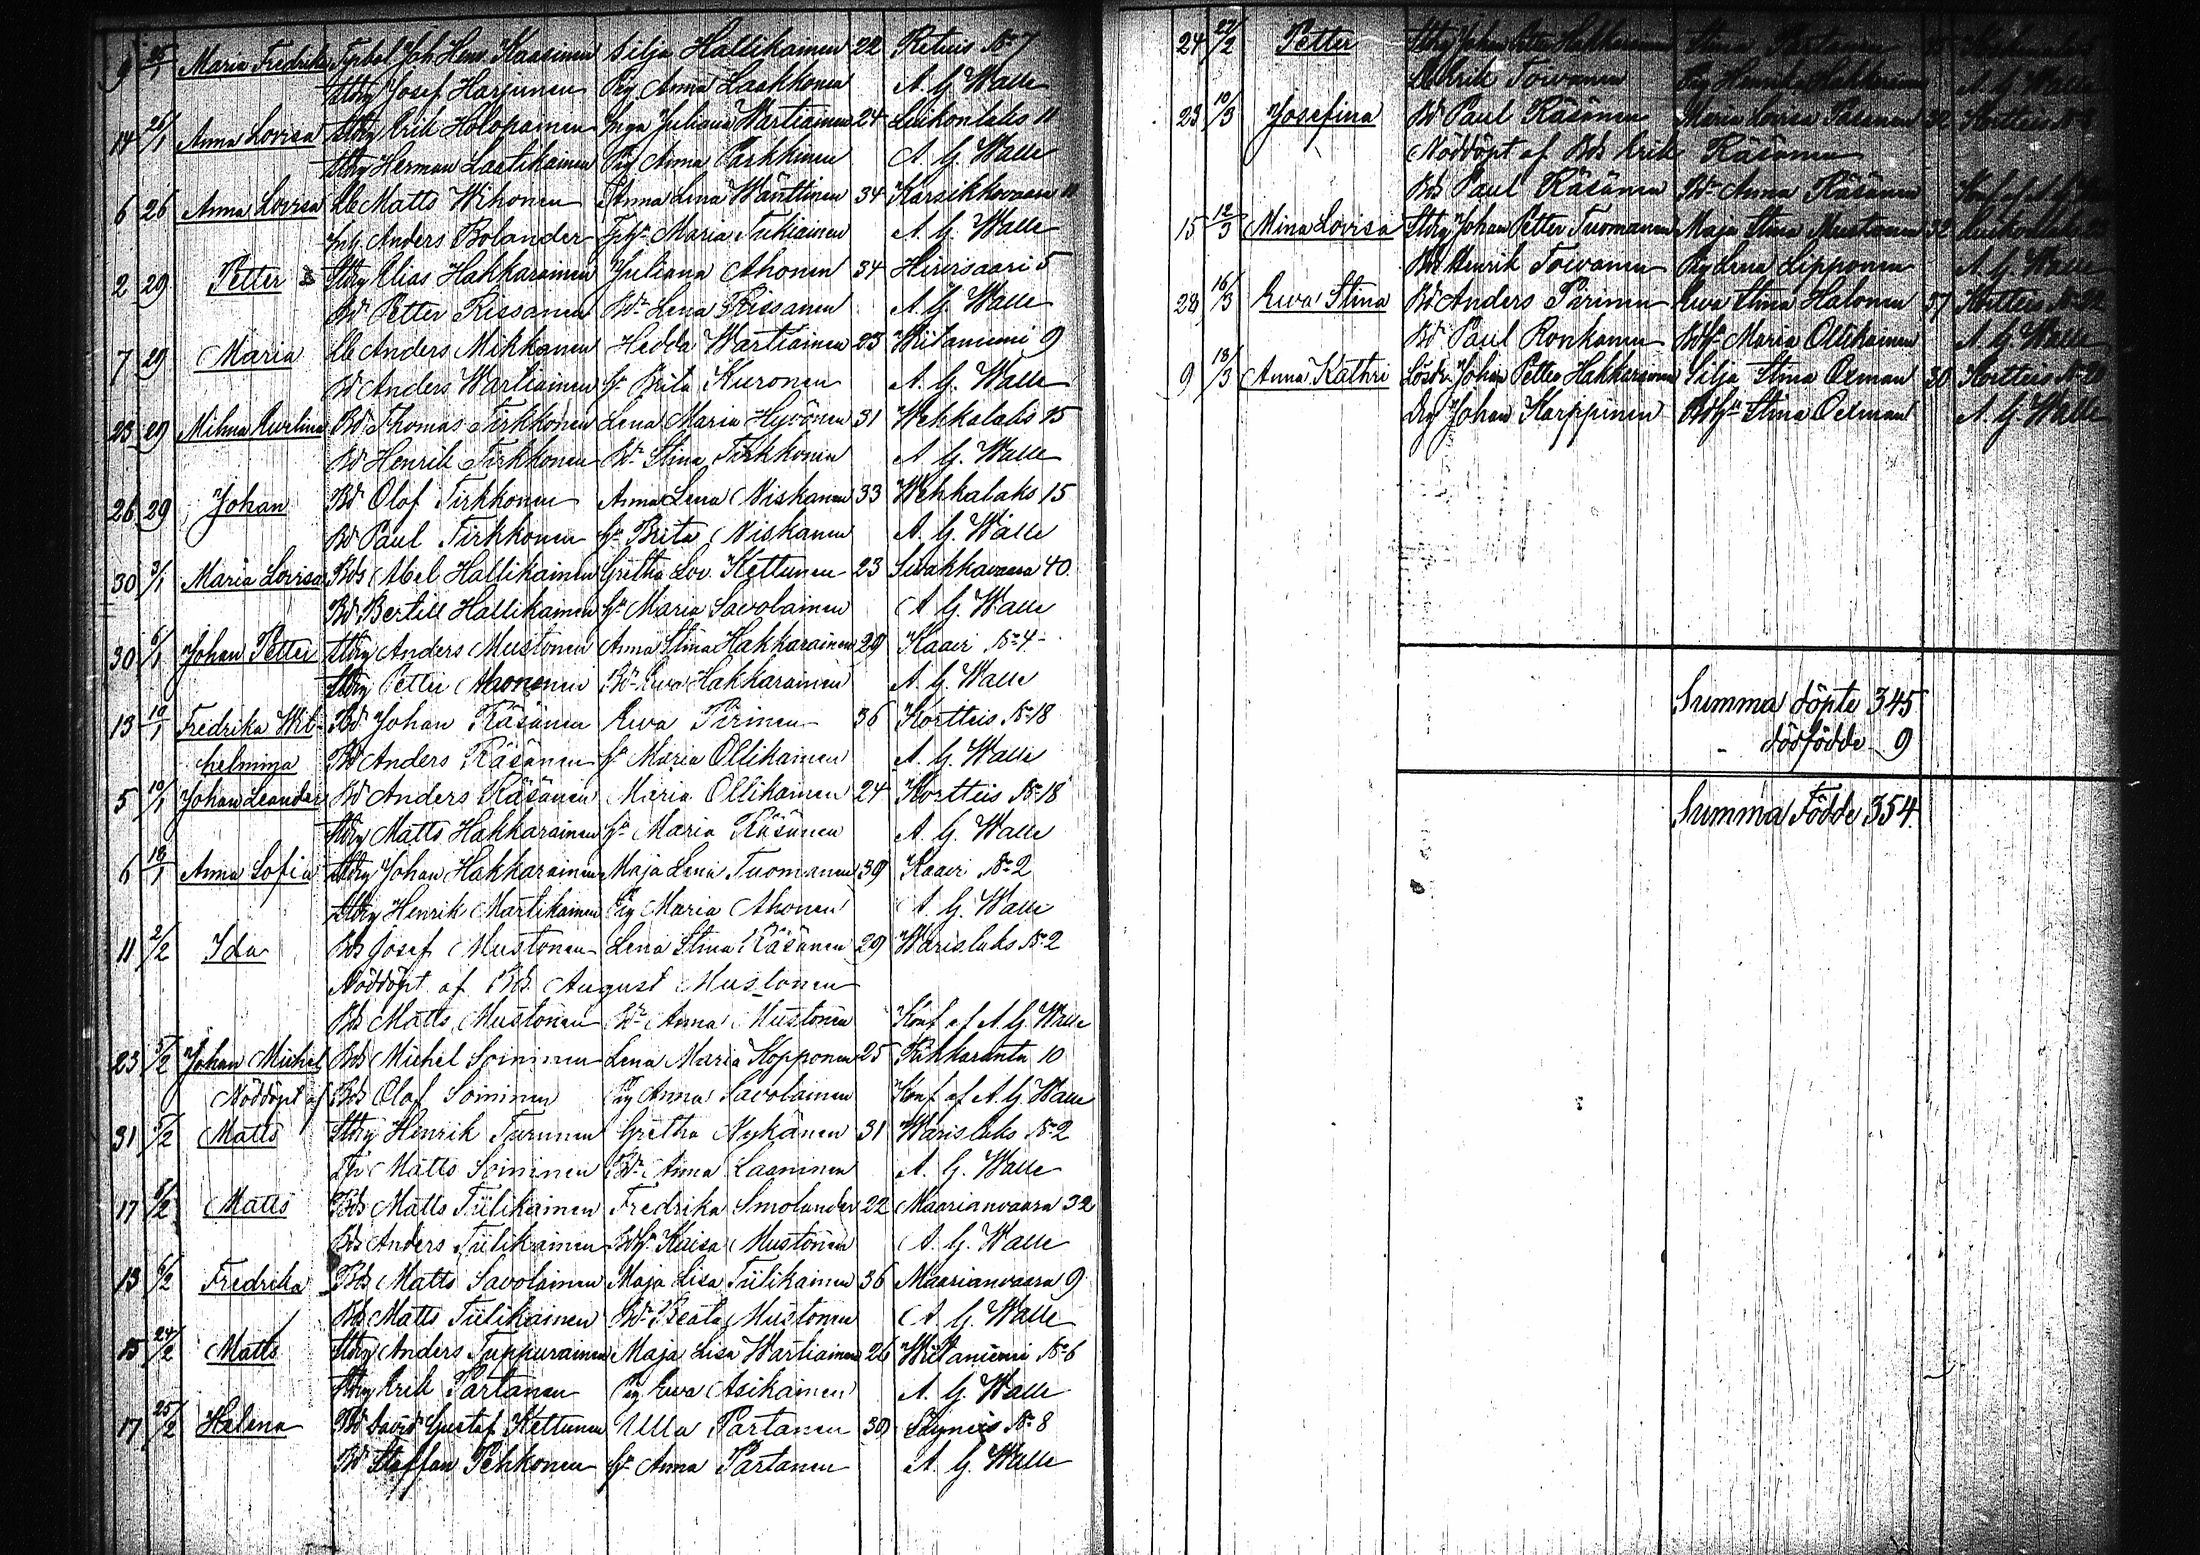 9 25/1 Maria Fredrika Joh. Kaasinen Silja Hallikainen 22 Retuis No 7
Stdrg Josef Harjunen Pig Anna Laakkonen A. G. Walle
14 25/1 Anna Lovisa Stdrg Erik Holopainen Inga Juliana Wartiainen 24 Luikonlaks 11
Stdrg Herman Laatikainen Pig Anna Parkkinen A. G. Walle
6 26 Anna Lovisa Matts Wihonen Anna Lena Wänttinen 34 Karsikkovaara 11
Inh. Anders Bolander Maria Tukiainen A. G. Walle
2 29 Petter Stdrg Elias Hakkarainen Juliana Ahonen 34 Hirvisaari 5
Bd Petter Rissanen Bdn Lena Rissanen A. G. Walle
7 29 Maria Anders Mikkanen Hedda Wartiainen 23 Wiitaniemi 9
Bd Anders Wartiainen hu Brita Kuronen A. G. Walle
23 29 Milma Evelina Bd Thomas Tirkkonen Lena Maria Hyvönen 31 Wehkalaks 15
Bd Henrik Tirkkonen Bdn Stina Tirkkonen A. G. Walle
26 29 Johan Bd Olof Tirkkonen Anna Lena Niskanen 33 Wehkalaks 15
Bd Paul Tirkkonen hu Brita Niskanen A. G. Walle
30 3/1 Maria Lovisa Bds Abel Hallikainen Gretha Lov. Kettunen 23 Sivakkavaara 40
Bd Bertill Hallikainen hu Maria Savolainen A. G. Walle
30 6/1 Johan Petter Stdrg Anders Mustonen Anna Stina Hakkarainen 29 Kaavi No 4
Stdrg Petter Ahonen Bdn Ewa Hakkarainen A. G. Walle
13 10/1 Fredrika Wil- Bd Johan Räsänen Ewa Pirinen 36 Kortteis No 18
helmina Bd Anders Räsänen hu Maria Ollikainen A. G. Walle
5 10/1 Johan Leander Bd Anders Räsänen Maria Ollikainen 24 Kortteis No 18
Stdrg Matts Hakkarainen hu Maria Räsänen A. G. Walle
6 18/1 Anna Sofia Stdrg Johan Hakkarainen Maja Lena Tuomanen 39 Kaavi No 2
Stdrg Henrik Martikainen Pig Maria Ahonen A. G. Walle
11 2/2 Ida Bds Josef Mustonen Lena Stina Räsänen 29 Warislaks No 2
Nöddöpt af Bds August Mustonen
Bds Matts Mustonen Bdn Anna Mustonen Konf af A. G. Walle
23 5/2 Johan Michel Bds Michel Soininen Lena Maria Kopponen 25 10
Nöddöpt af Bds Olof Soininen Pig Anna Savolainen Konf af A. G. Walle
31 5/2 Matts Stdrg Henrik Turunen Gretha Nykänen 31 Warislaks No 2
Matts Soininen Bdn Anna Laaninen A. G. Walle
17 6/2 Matts Bds Matts Tiilikainen Fredrika Smolander 22 Maarianvaara 32
Bds Anders Tiilikainen Kaisa Mustonen A. G. Walle
13 6/2 Fredrika Bds Matts Savolainen Maja Lisa Tiilikainen 36 Maarianvaara 9
Bds Matts Tiilikainen Bdn Beata Mustonen A. G. Walle
15 24/2 Matts Stdrg Anders Tuppurainen Maja Lisa Wartiainen 26 Wiitaniemi No 6
Stdrg Erik Partanen Pig Ewa Asikainen A. G. Walle
17 25/2 Helena Bd David Gustaf Kettunen Ulla Partanen 30 No 8
Bd Staffan Pehkonen hu Anna Partanen A. G. Walle
24 27/2 Petter Stdrg Johan Petter Hakkarainen
Erik Toivanen Pig Hakkarainen A. G. Walle
23 10/3 Josefina Bd Paul Räsänen Maria Lovisa 32 Kortteis
Nöddöpt af Bds Erik Räsänen
Bds Paul Räsänen Bdn Anna Räsänen Konf af A. G. Walle
15 12/3 Mina Lovisa Stdrg Johan Petter Tuomanen Maja Stina Mustonen 32 Luikonlaks
Bds Henrik Toivanen Pig Lena Lipponen A. G. Walle
28 16/3 Ewa Stina Bd Anders Pirinen Ewa Stina Halonen 37 Kortteis
Bd Paul Ronkanen Maria Ollikainen A. G. Walle
9 18/3 Anna Kathri Lösdr. Johan Petter Hakkarainen Silja Stina Oxman 30 Kortteis
Drg Johan Karppinen Stina Oxman A. G. Walle
Summa döpte 345
dödfödde 9
Summa Födde 354.